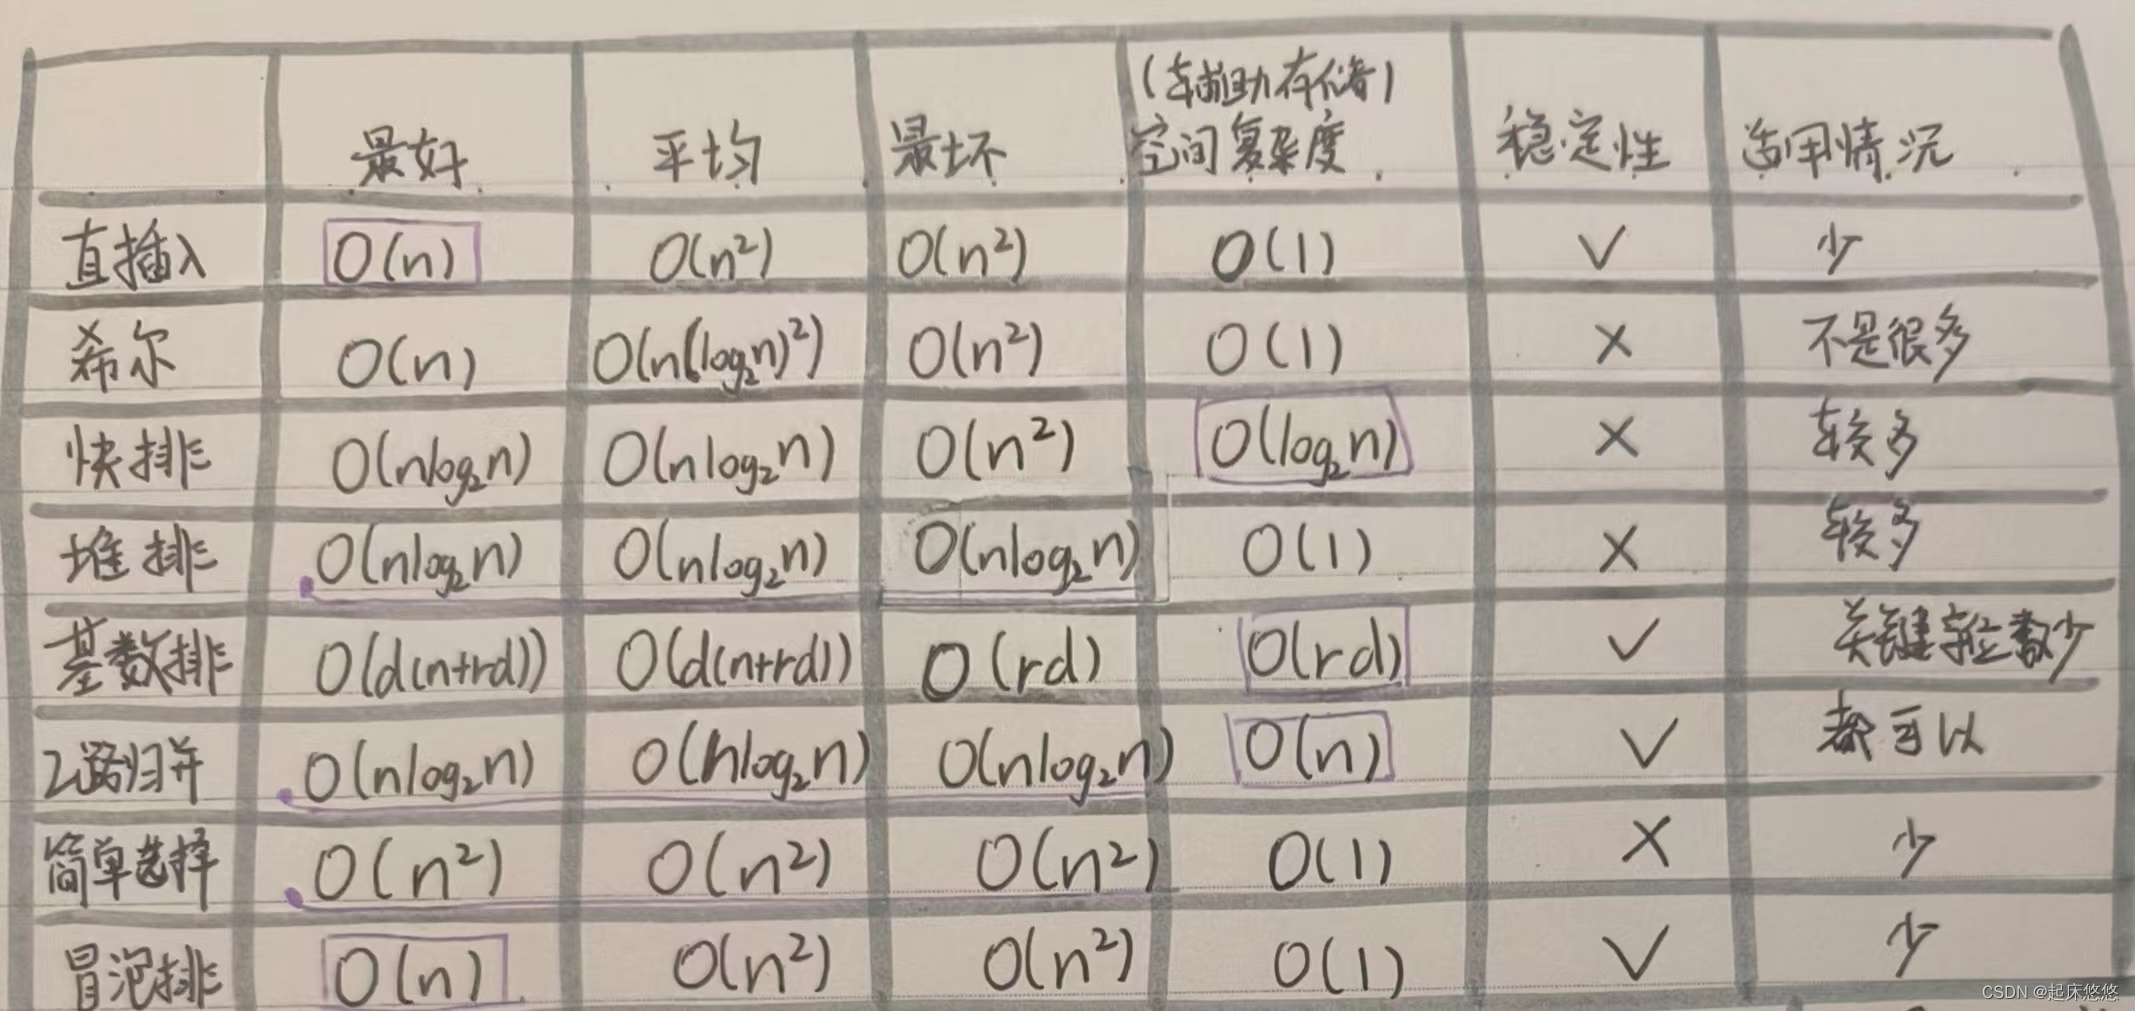 最好 平均 最坏 (辅助存储) 空间复杂度 稳定性 适用情况
直插入 O(n) O(n²) O(n²) O(1) ✓ 少
希尔 O(n) O(n(log₂n)²) O(n²) O(1) × 不是很多
快排 O(nlog₂n) O(nlog₂n) O(n²) O(log₂n) × 较多
堆排 O(nlog₂n) O(nlog₂n) O(nlog₂n) O(1) × 较多
基数排 O(d(n+rd)) O(d(n+rd)) O(rd) O(rd) ✓ 关键字位数少
2路归并 O(nlog₂n) O(nlog₂n) O(nlog₂n) O(n) ✓ 都可以
简单选择 O(n²) O(n²) O(n²) O(1) × 少
冒泡排 O(n) O(n²) O(n²) O(1) ✓ 少
CSDN @起床悠悠